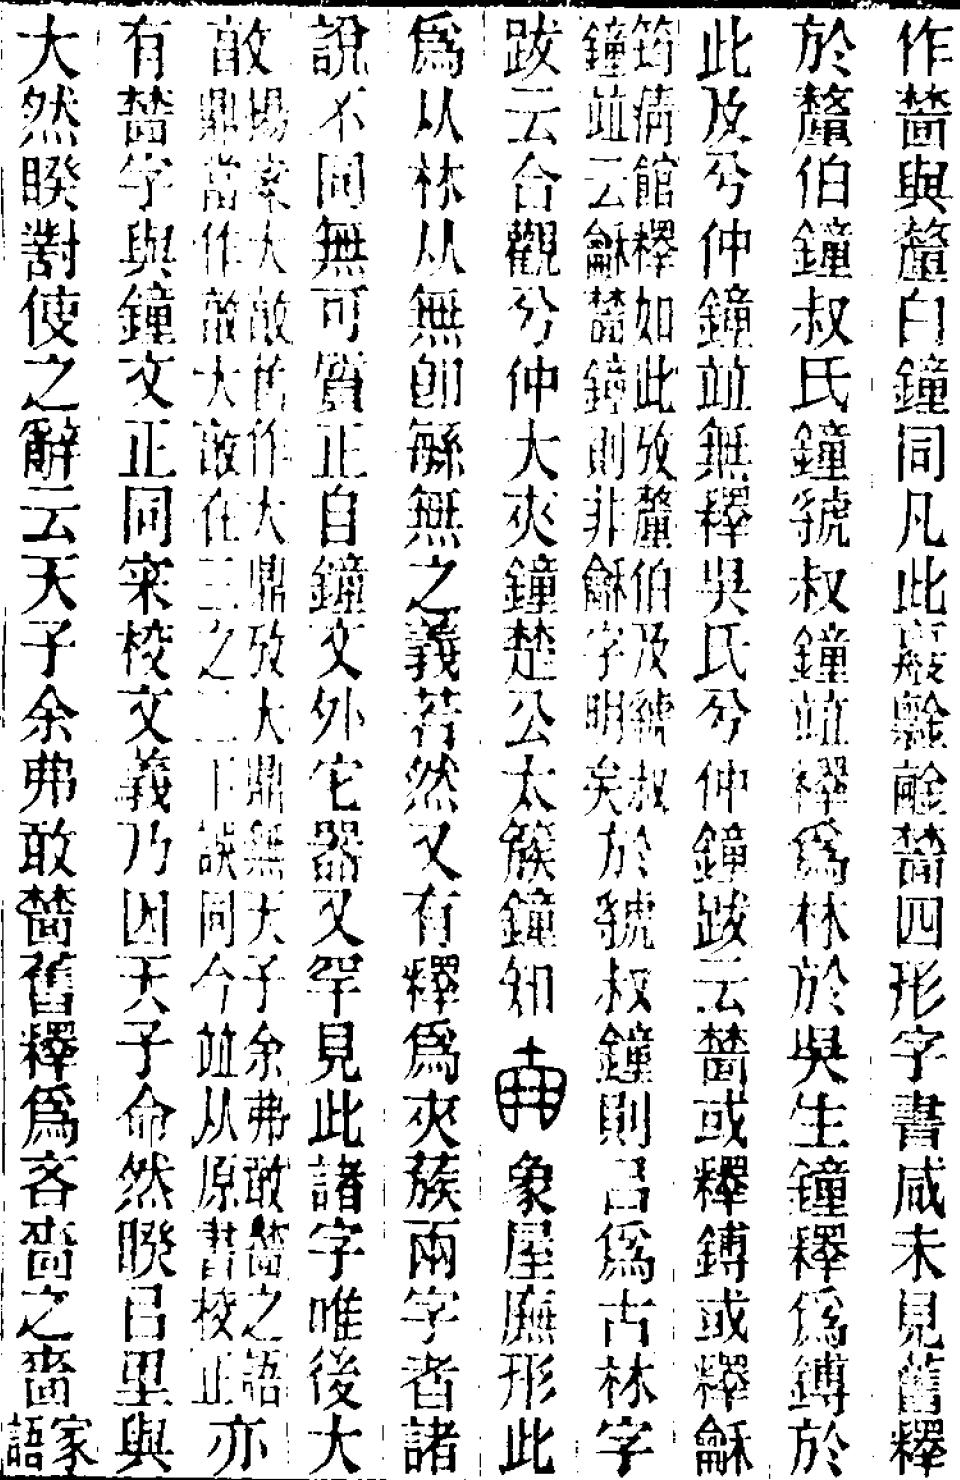 作薔與釐白鐘同凡此敼㱃薔四形字書咸未見舊釋
於釐伯鐘叔氏鐘虢叔鐘竝釋爲林於吳生鐘釋爲鎛於
此及兮仲鐘竝無釋吳氏兮仲鐘跋云薔或釋鎛或釋龢
筠淸館釋如此攷釐伯及虢叔
鐘竝云龢薔鐘則非龢字明矣
於虢叔鐘則㠯爲古林字
跋云合觀兮仲大夾鐘楚公太簇鐘知象屋廡形此
爲从林从無卽緐無之義若然又有釋爲夾蔟兩字者諸
說不同無可質正自鐘文外它器又罕見此諸字唯後大
敦
揚案大敵舊作大鼎攷大鼎無天子余弗敢薔之語
鼎當作敵大敵在三之二下誤同今竝从原書校正
亦
有薔字與鐘文正同寀校文義乃因天子命然睽㠯里與
大然睽對使之辭云天子余弗敢薔舊釋爲吝嗇之嗇
家
語